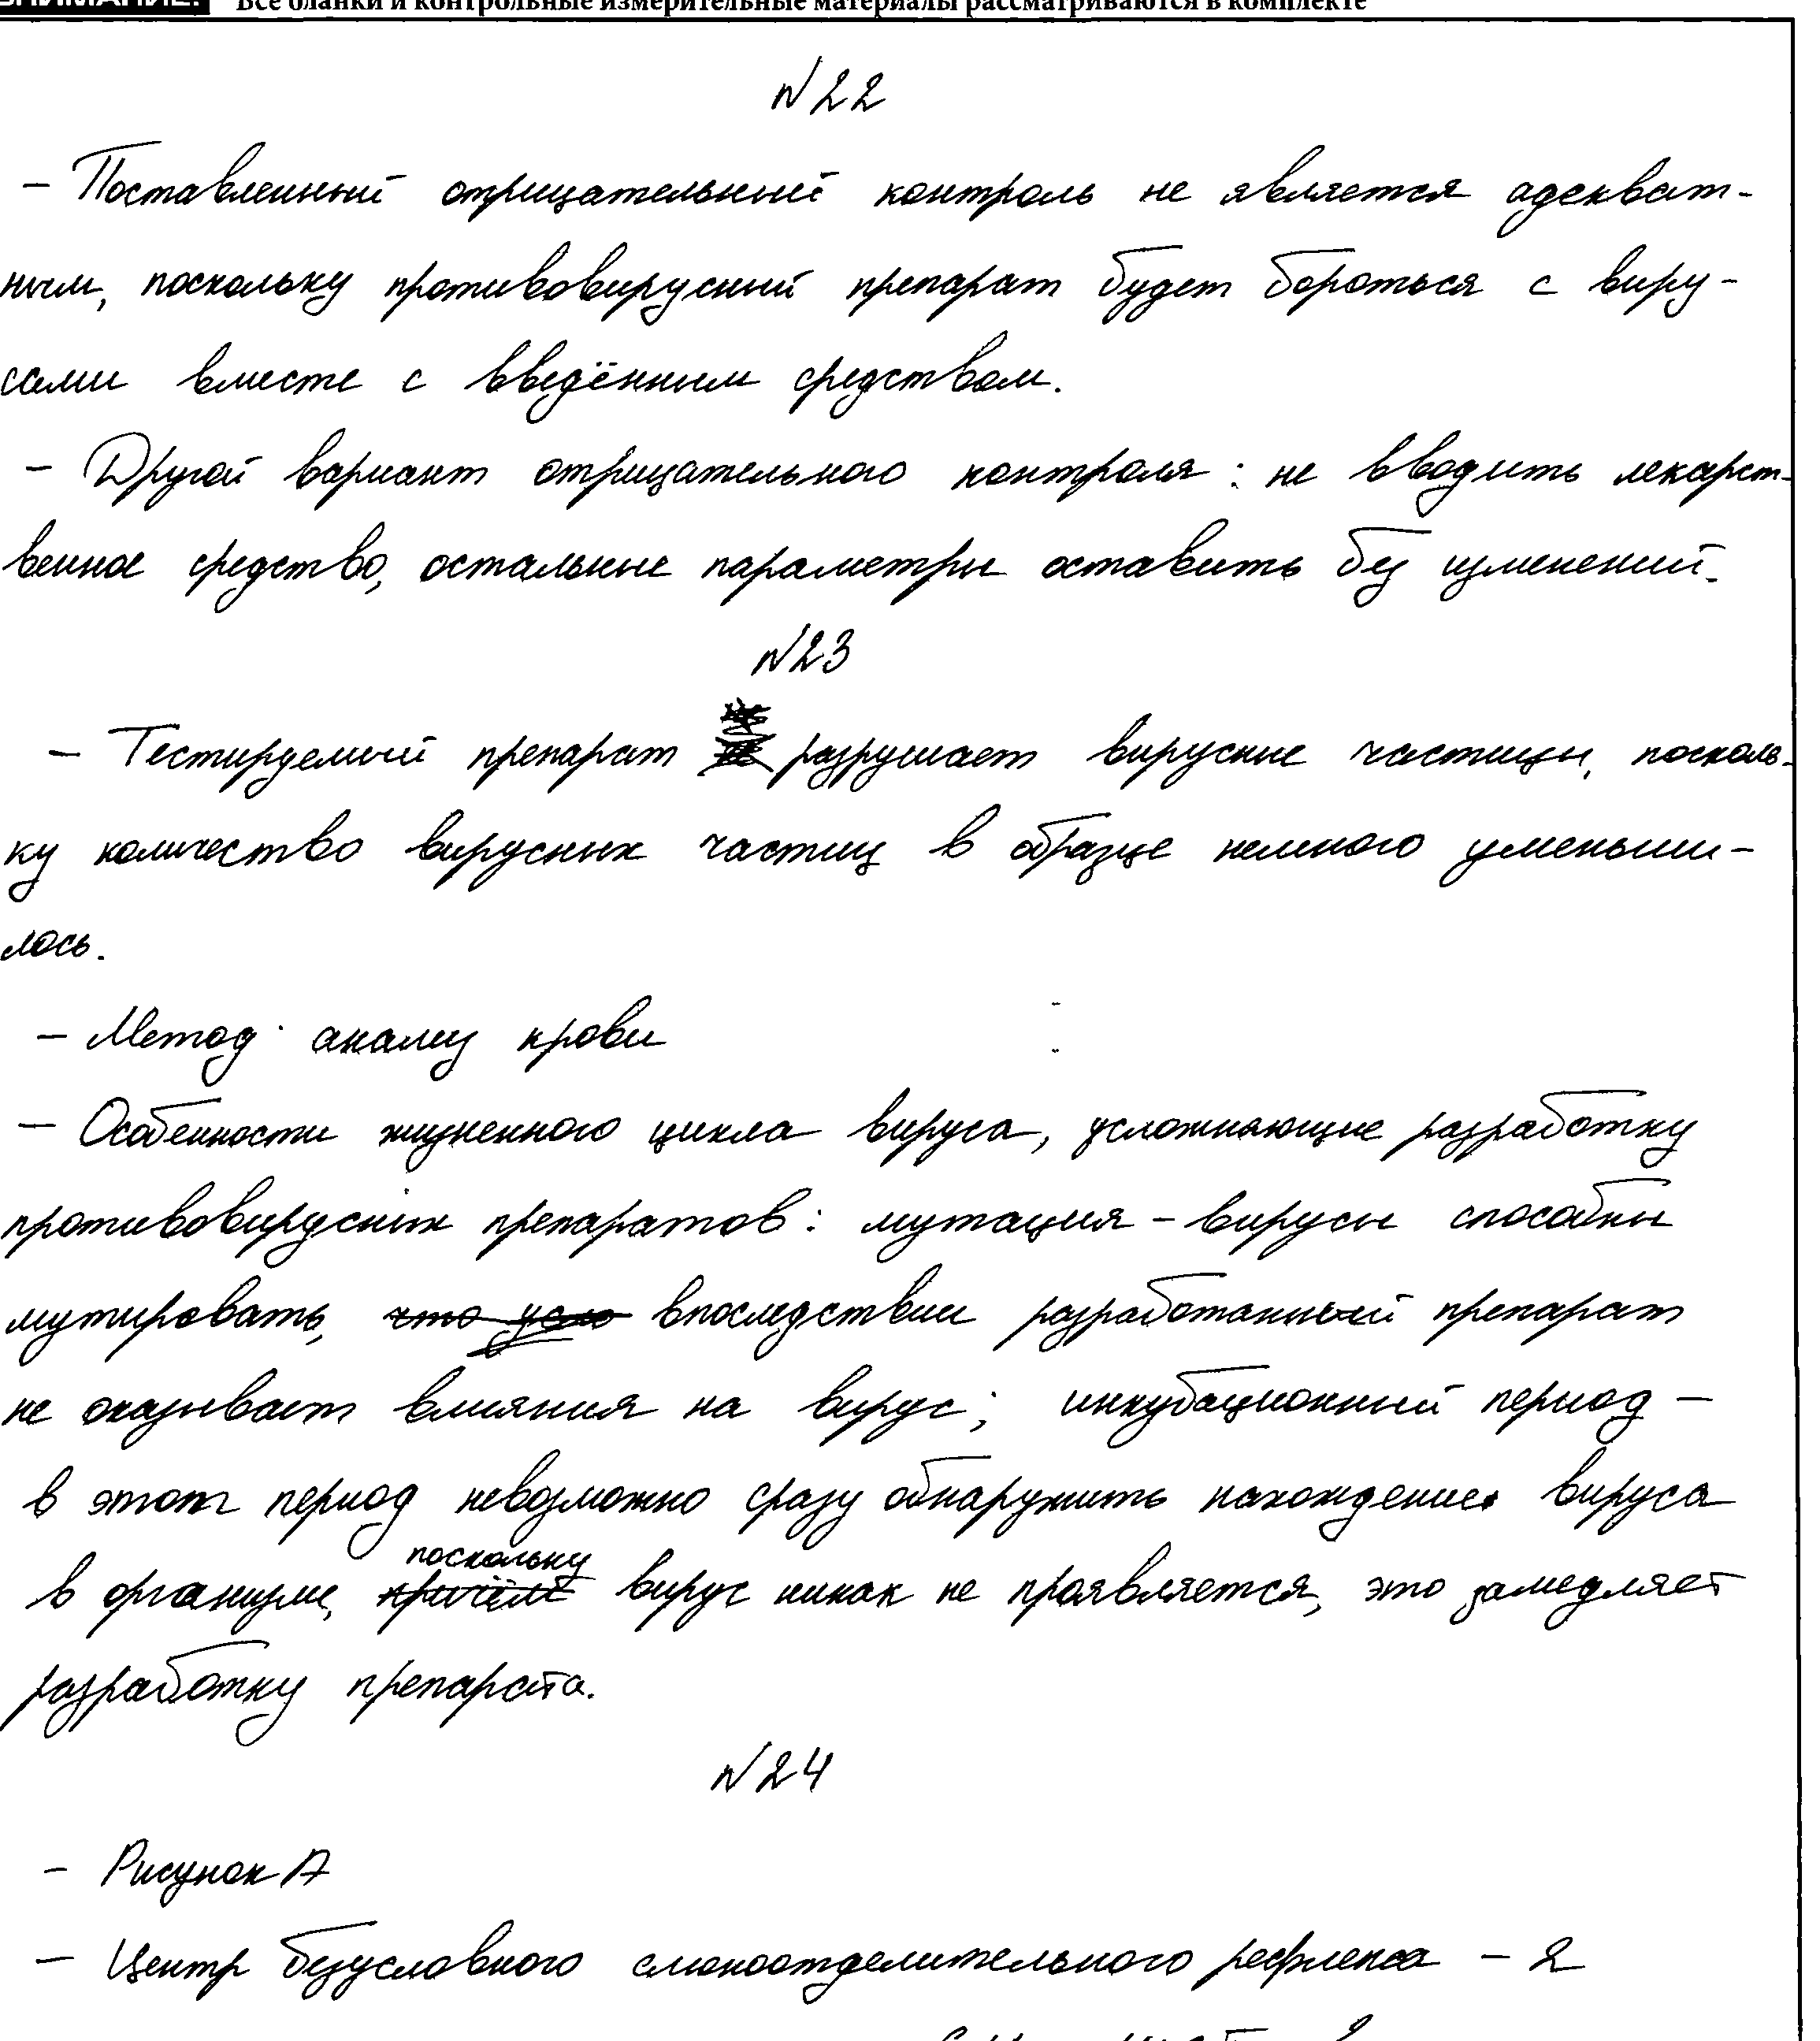 ВНИМАНИЕ! Все бланки и контрольные измерительные материалы рассматриваются в комплекте
№22
- Поставленный отрицательный контроль не является адекват-
ным, поскольку противовирусный препарат будет бороться с виру-
сами вместе с введённым средством.
- Другой вариант отрицательного контроля: не вводить лекарст-
венное средство, остальные параметры оставить без изменений.
№23
- Тестируемый препарат разрушает вирусные частицы, посколь-
ку количество вирусных частиц в образце немного уменьши-
лось.
- Метод: анализ крови
- Особенности жизненного цикла вируса, усложняющие разработку
противовирусных препаратов: мутация - вирусы способны
мутировать, что усло впоследствии разработанный препарат
не оказывает влияния на вирус; инкубационный период -
в этот период невозможно сразу обнаружить нахождение вируса
поскольку
в организме, причём вирус никак не проявляется, это замедляет
разработку препарата.
№24
- Рисунок А
- Центр безусловного слюноотделительного рефлекса - 2